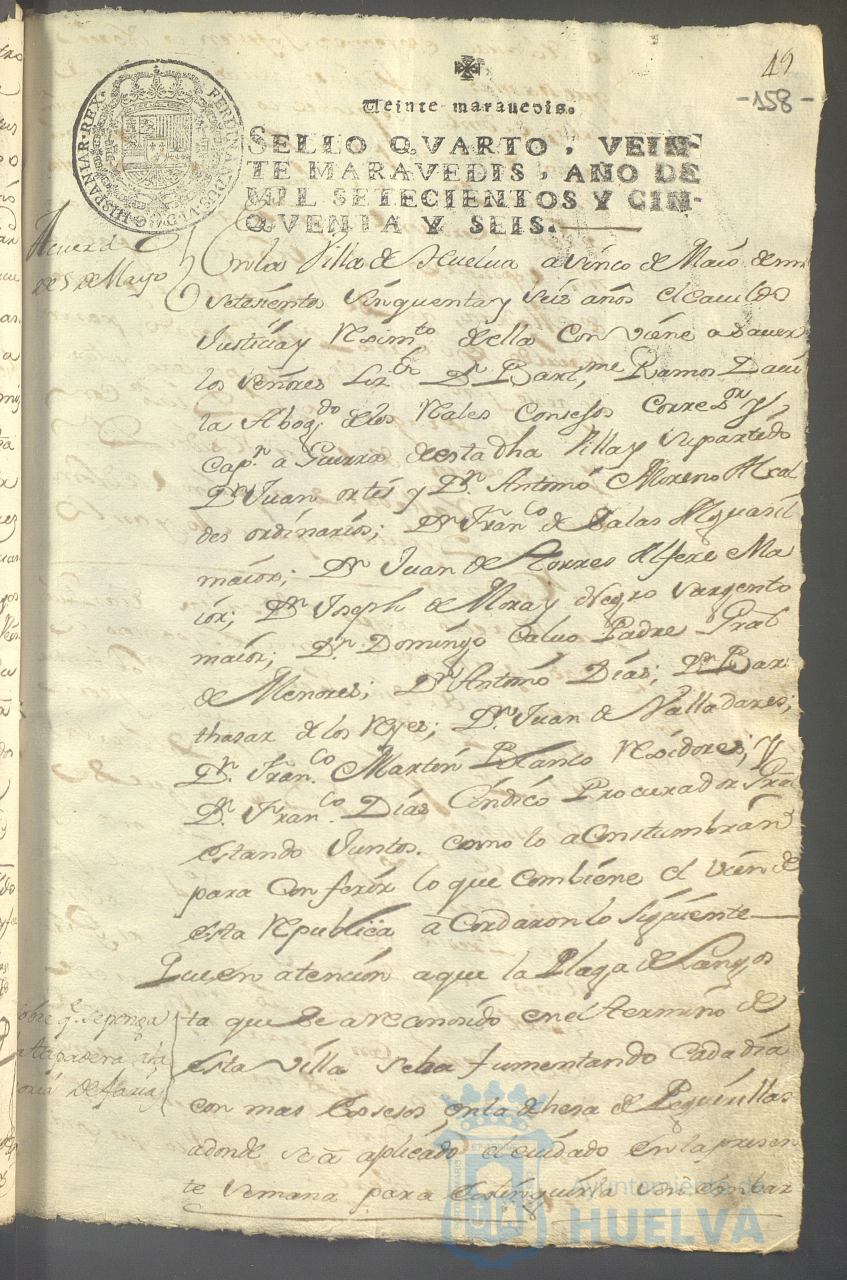 49
-158-
Veinte marauedis.
SELLO QVARTO, VEIN-
TE MARAVEDIS, AÑO DE
MIL SETECIENTOS Y CIN-
QVENTA Y SEIS.
FERDINANDUS VI D.G. HISPANIAR REX
Acuerdo
de 5 de Mayo
En la Villa de Huelua a sinco de Maio de mil
setesientos sinquenta y seis años el cauildo
Justicia y Resimto della conviene a sauer
los señores Lizdo Dn Bartme Ramos Daui
la Abogdo de los Rales Consejos Corresor y
Capn a Guerra de esta dha Villa y su partido
Dn Juan ortis y Dn Antonio Moreno Alcal
des ordinarios; Dn Franco de Salas Alguasil
maior; Dn Juan de Torres Alfere Ma
ior; Dn Joseph de Mora y Negro Sargento
maior; Dn Domingo Caluo Padre Gral
de Menores; Dn Antonio Dias; Dn Bar
thasar de los Reyes; Dn Juan de Valladares;
Dn Franco Martin Blanco Residores; y
Dn Franco Dias Cindico Procurador Gral
estando Juntos como lo aConstumbran
para Conferir lo que combiene el vien de
esta Republica aCordaron lo siguiente
Que en atencion a que la Plaga de Langos
ta que se a reconosido en el termino de
esta villa se ha fumentando cada dia
con mas exseso en la dhesa de Peguerillas
adonde se a aplicado el cuidado en la presen
te semana para estinguirla
sobre q se ponga
de faria
Ayuntamiento de
HUELVA